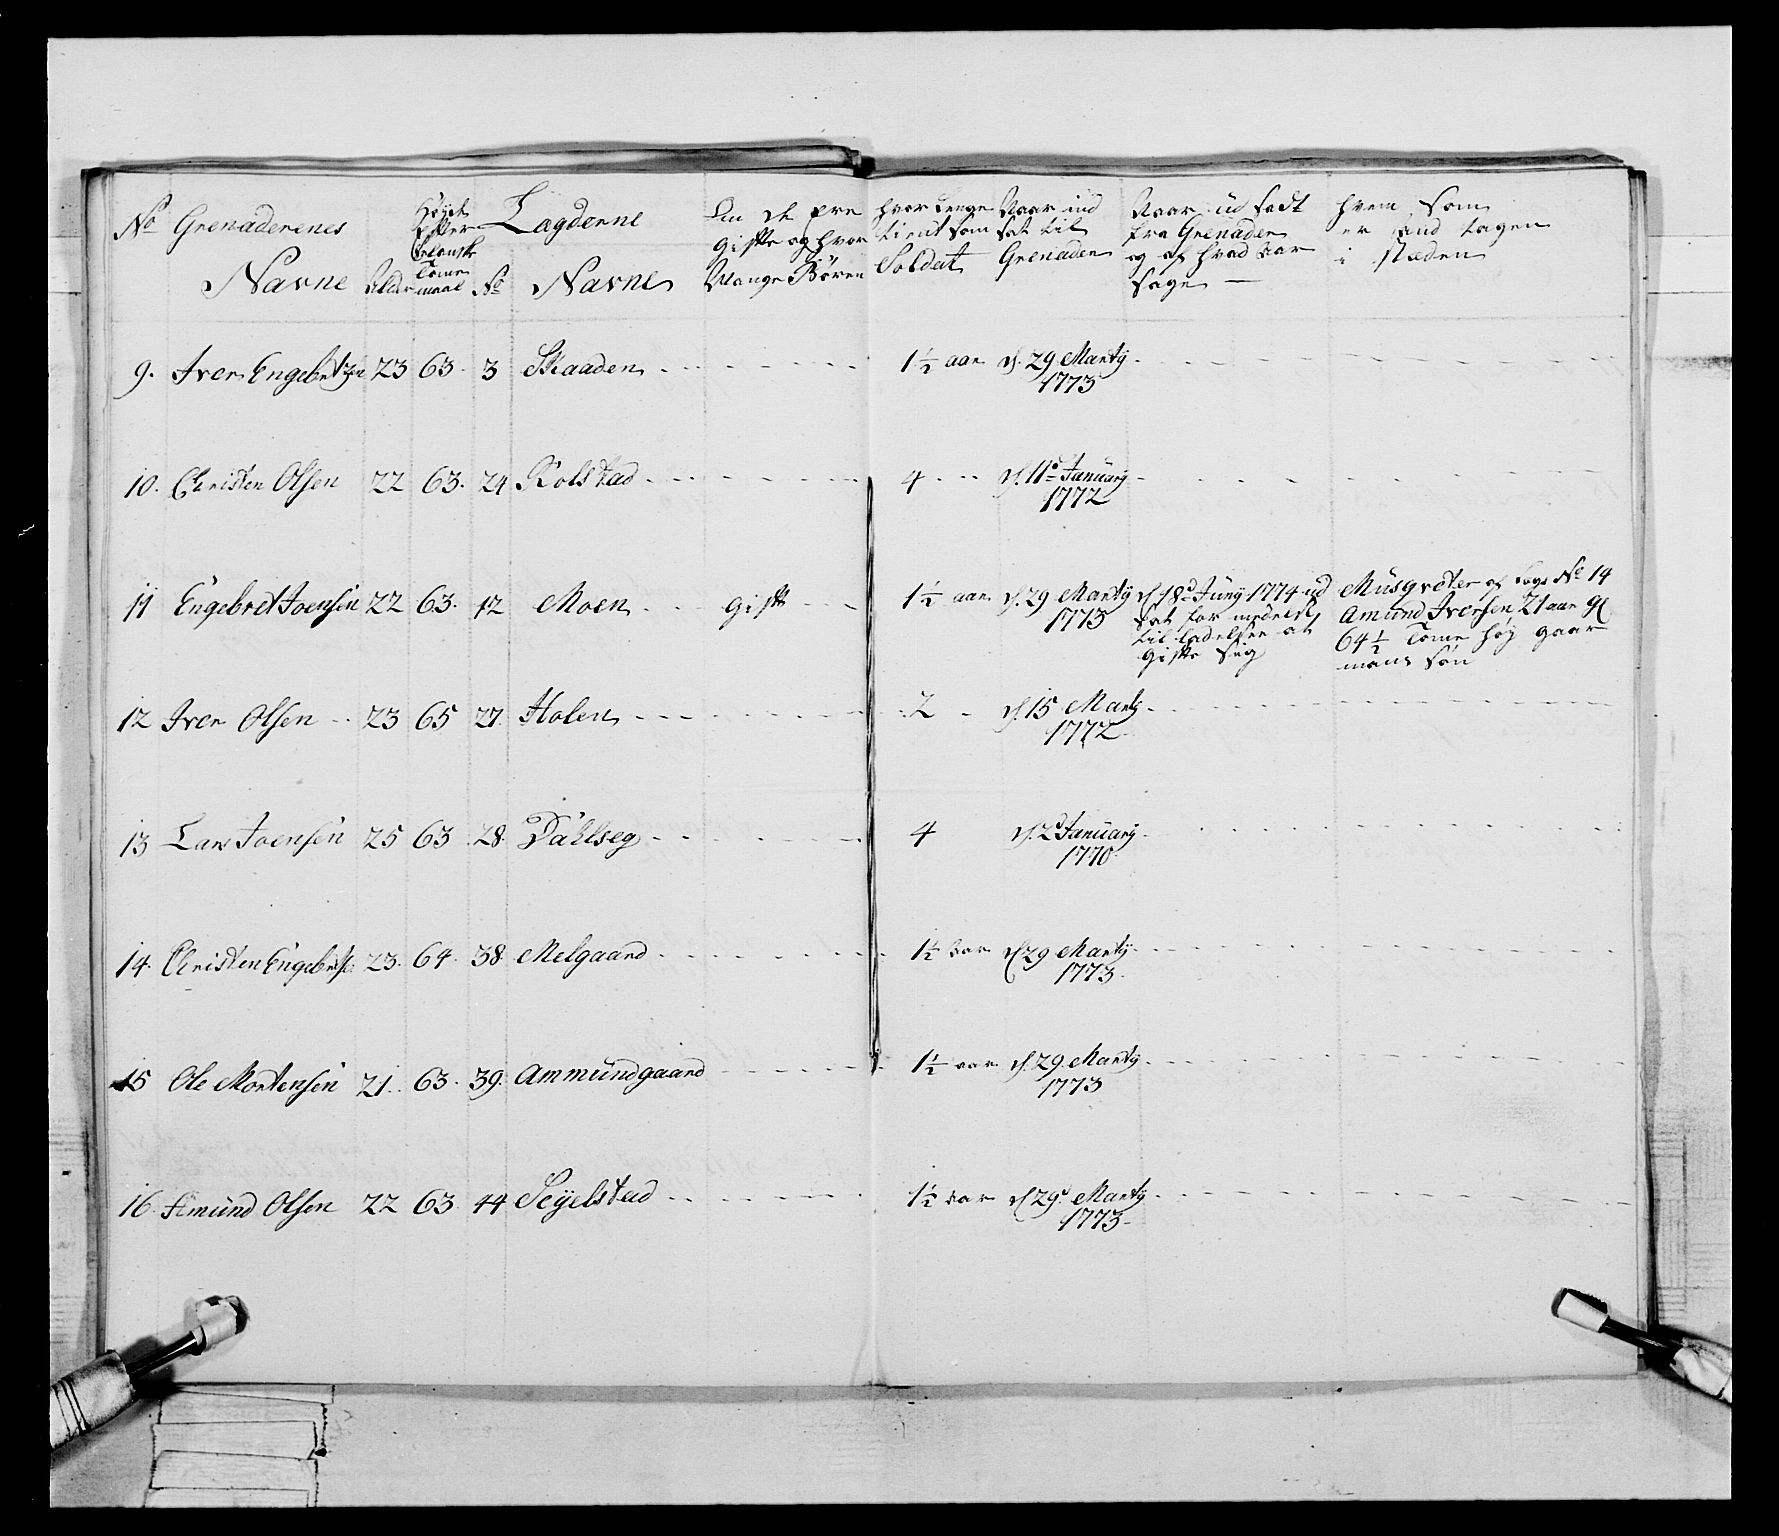 No Grenaderenes Navne Alder Høyde efter Selansk Tome maal No Lagderne Navne Om de ere gifte og hvor Mange Børen hvor Lenge tient som Soldat Naar ind sat til Grenader Naar ud sadt fra Grenader og af hvad aar sage hvem som er ind tagen i stæden
9. Iver Engebretzen 23 63. 3 Skaaden 1½ aar d. 29 Martij
1773
10. Christen Olsen 22 63. 24 Rolstad 4 d. 11te Januarij
1772
11 Engebret Joensen 22 63. 12 Moen gift 1½ aar d. 29 Martij d 19d Junij 1774 ud Musqveter af Lags No 14
1773 sat for medelst Amund Iversen 21 aar gl
til ladelsen at 64½ Tome høy gaar
gifte sig mans søn
12 Iver Olsen 23 65 27. Holen 2 d. 15 Marti
1772
13 Lars Joensen 25 63 28. Dahlseg 4 d. 2d Januarij
1770
14. Christen Engebretsen 23. 64. 38. Melgaard 1½ aar d 29 Martij
1773.
15 Ole Mortensen 21. 63. 39. Ammundgaard 1½ aar d. 29. Martij
1773
16 Amund Olsen 22 63. 44 Seyelstad 1½ aar d 29d Martij
1773